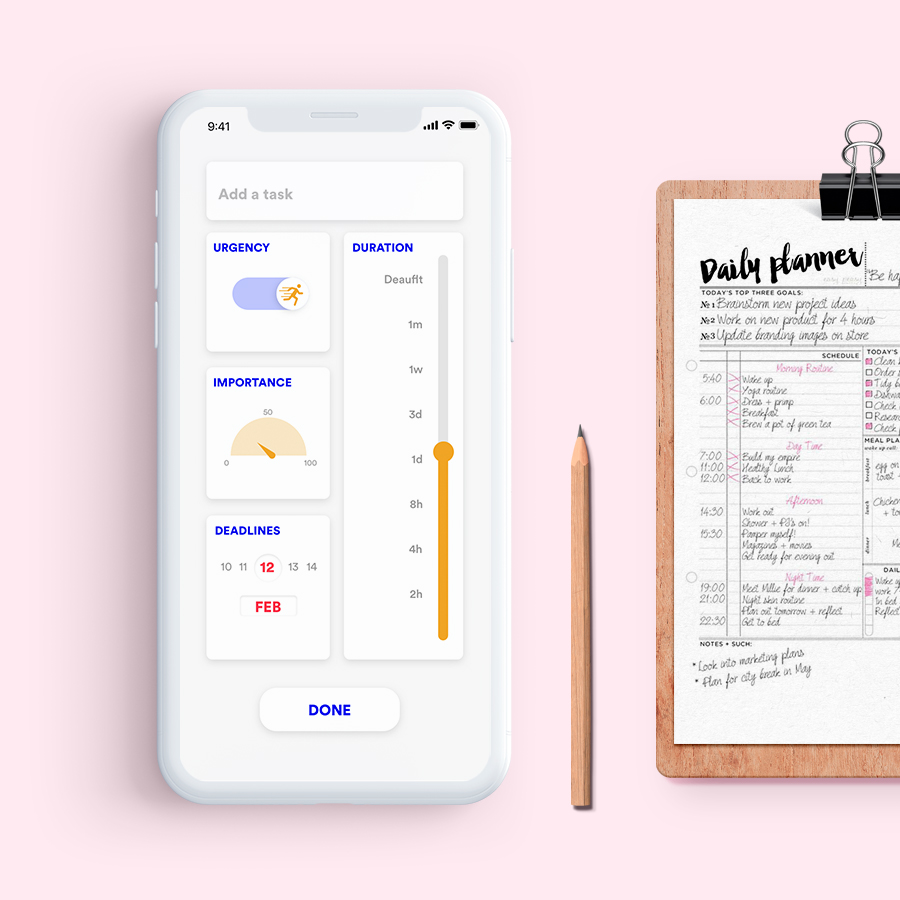 9:41
Add a task
URGENCY
IMPORTANCE
50
0
100
DEADLINES
10 11 12 13 14
FEB
DURATION
Deauflt
1m
1w
3d
1d
8h
4h
2h
DONE
Daily planner
"Be ha
TODAY'S TOP THREE GOALS:
№1 Brainstorm new project ideas
№2 Work on new product for 4 hours
№3 Update branding images on store
SCHEDULE
Morning Routine
5:40 Wake up
Yoga routine
6:00 Dress + primp
Breakfast
Brew a pot of green tea
Day Time
7:00 Build my empire
11:00 Healthy lunch
12:00 Back to work
Afternoon
14:30 Work out
Shower + PJ's on!
15:30 Pamper myself!
Magazines + movies
Get ready for evening out
Night Time
19:00 Meet Millie for dinner + catch up
21:00 Night skin routine
Plan out tomorrow + reflect
22:30 Get to bed
TODAY'S
Clean
Order
Tidy
Check
Resear
Check
MEAL PLA
wake up call:
breakfast
egg on
toast
lunch
Chicken
+ to
dinner
DAIL
Wake
work 7
In bed
Reflect
NOTES + SUCH:
* Look into marketing plans
* Plan for city break in May